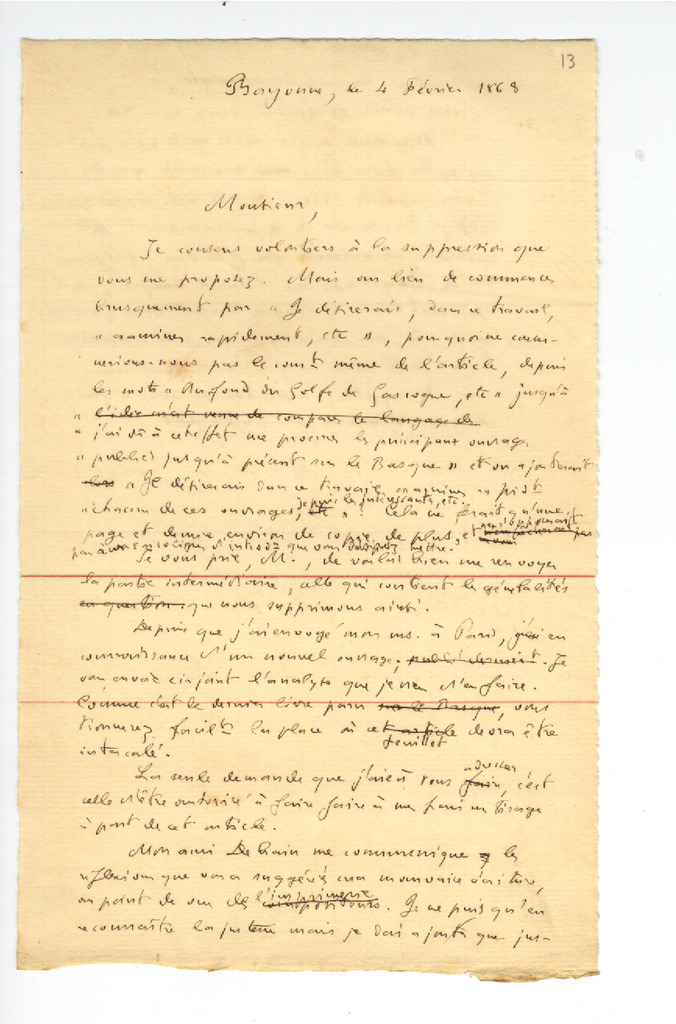 13
Bayonne, le 4 Février 1868
Monsieur,
Je consens volontiers à la suppression que
vous me proposez. Mais au lieu de commencer
brusquement par « Je désirerais, dans ce travail,
« examiner rapidement, etc », pourquoi ne com-
mencerions-nous pas le comt même de l'article, depuis
les mots « Au fond du Golfe de Gascogne, etc » jusqu'à
« l'idée m'est venue de comparer le langage des
« j'ai dû à cet effet me procurer les principaux ouvrages
« publiés jusqu'à présent sur le Basque » et on ajouterait
« Je désirerais dans ce travail examiner
« chacun de ces ouvrages, etc » ? Cela ne ferait qu'une
depuis les intéressants, etc.
page et demie environ de copie de plus, et
que vous mettre.
Je vous prie, M., de vouloir bien me renvoyer
la partie intermédiaire, celle qui contient les généralités
en question que nous supprimons ainsi.
Depuis que j'ai envoyé mon ms. à Paris, j'ai eu
connaissance d'un nouvel ouvrage publié récemment. Je
vous envoie ci-joint l'analyse que je viens d'en faire.
Comme c'est le dernier livre paru sur le Basque, vous
trouverez facilt la place où cet article devra être
feuillet
intercalé.
La seule demande que j'aie à vous faire, c'est
adresser
celle d'être autorisé à faire faire à mes frais un tirage
à part de cet article.
Mon ami me communique les
réflexions que vous a suggérées ma mauvaise écriture,
au point de vue de l'imprimerie
compositeurs. Je ne puis qu'en
reconnaître la justesse mais je dois ajouter que jus-